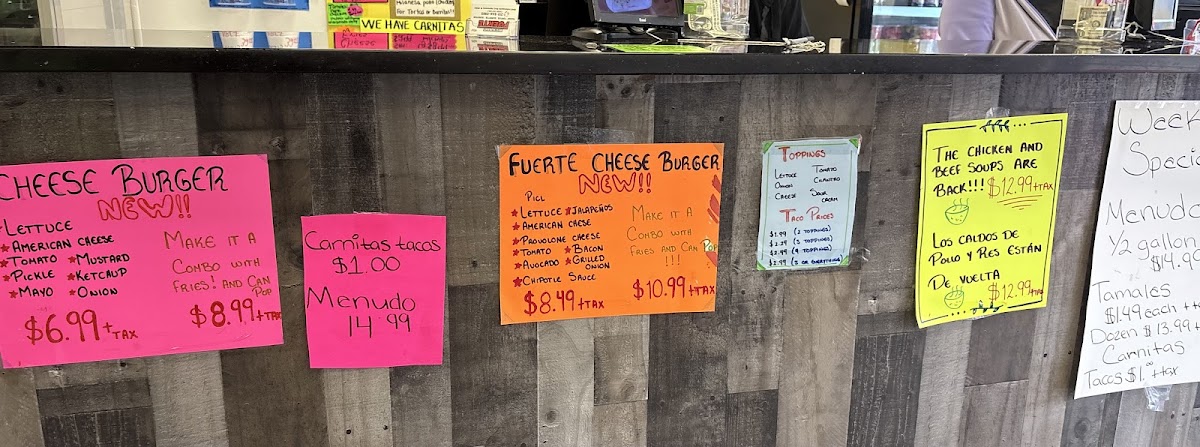 WE HAVE CARNITAS
CHEESE BURGER
NEW!!
LETTUCE
★ AMERICAN CHEESE
★ TOMATO ★ MUSTARD
★ PICKLE ★ KETCAUP
★ MAYO ★ ONION
$6.99 + TAX
MAKE IT A
COMBO WITH
FRIES! AND CAN
POP
$8.99 + TAX
Carnitas tacos
$1.00
Menudo
14 99
FUERTE CHEESE BURGER
NEW!!
PICL
★ LETTUCE ★ JALAPEÑOS
★ AMERICAN CHESE
★ PROVOLONE CHEESE
★ TOMATO ★ BACON
★ AVOCADO ★ GRILLED
ONION
★ CHIPOTLE SAUCE
$8.49 + TAX
MAKE IT A
COMBO WITH
FRIES AND CAN POP
!!!
$10.99 + TAX
TOPPINGS
LETTUCE TOMATO
ONION CILANTRO
CHEESE SOUR
CREAM
TACO PRICES
$1.99 (2 TOPPINGS)
$2.29 (3 TOPPINGS)
$2.49 (4 TOPPINGS)
$2.99 (5 OR EVERYTHING)
THE CHICKEN AND
BEEF SOUPS ARE
BACK!!! $12.99 + TAX
LOS CALDOS DE
POLLO Y RES ESTÁN
DE VUELTA
$12.99 + TAX
Week
Speci
Menudo
1/2 gallon
$14.99
Tamales
$1.49 each +
Dozen $13.99 +
Carnitas
Tacos $1.00 + tax